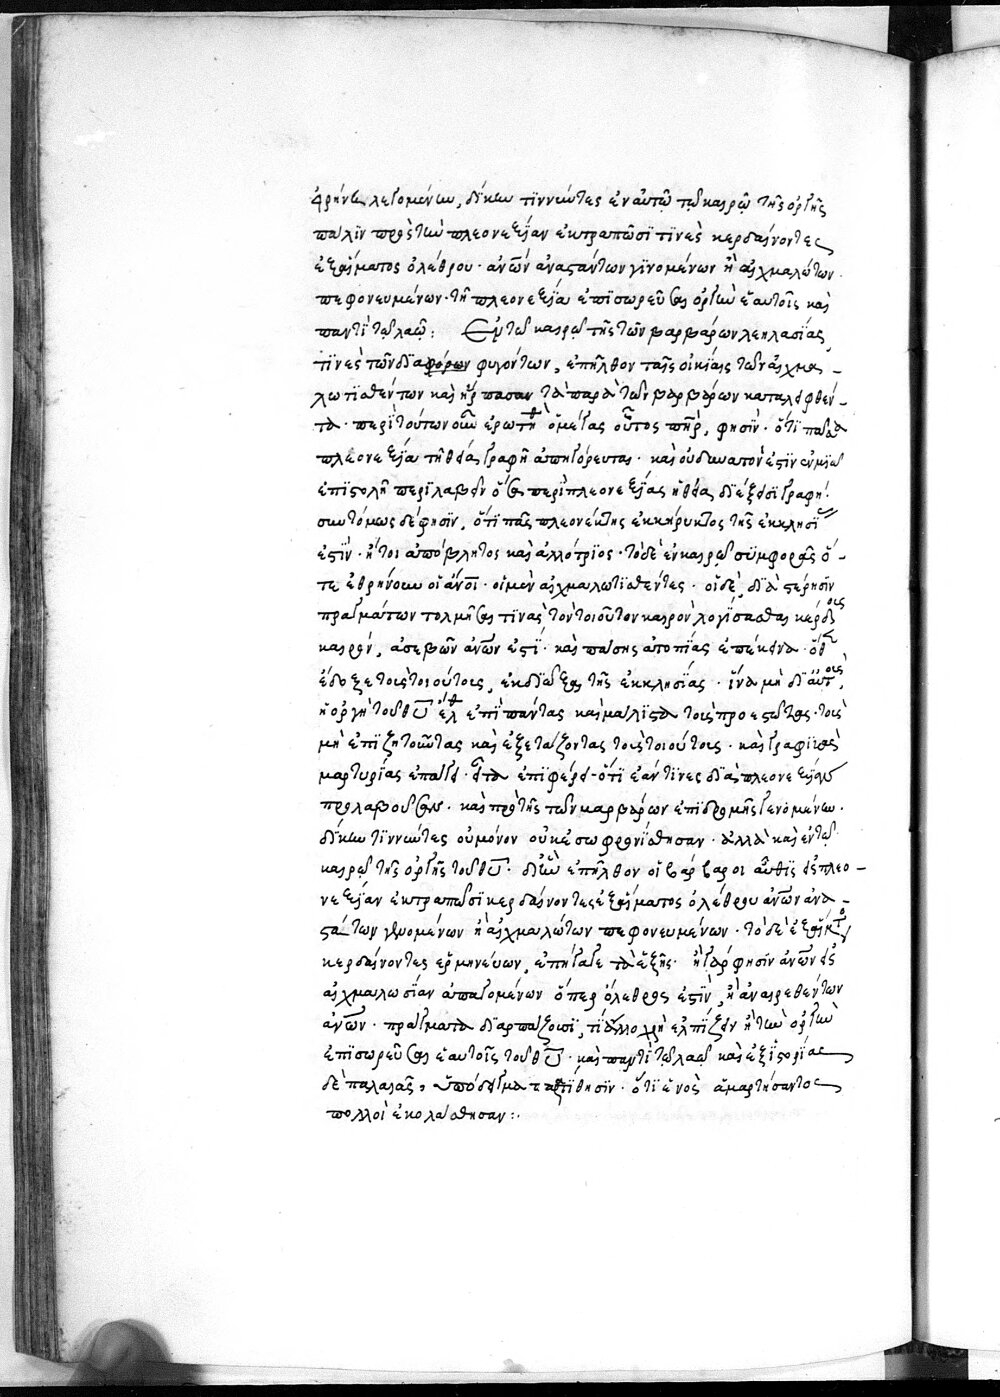 θρήνων λεγομένων, δίκην τιννύντες ἐν αὐτῷ τῷ καιρῷ τῆς ὀργῆς
πάλιν πρὸς τὴν πλεονεξίαν ἐκτραπῶσί τινὲς κερδαίνοντες
ἐξ αἵματος ὀλέθρου · ἀνῶν ἀναστάτων γινομένων ἢ αἰχμαλώτων
πεφονευμένων · τῇ πλεονεξίᾳ ἐπισωρεῦσαι ὀργὴν ἑαυτοῖς καὶ
παντὶ τῷ λαῷ : Ἐν τῷ καιρῷ τῆς τῶν βαρβάρων λεηλασίας
τινὲς τῶν διαφόρων φυγόντων, ἐπῆλθον ταῖς οἰκίαις τῶν αἰχμα-
λωτισθέντων καὶ ἥρπασαν τὰ παρὰ τῶν βαρβάρων καταλειφθέν-
τα · περὶ τούτων οὖν ἐρωτηθ ὁ μέγας οὗτος πηρ, φησὶν · ὅτι πᾶσα
πλεονεξία τῇ θείᾳ γραφῇ ἀπηγόρευται · καὶ οὐ δυνατὸν ἐστὶν ἐν μιᾷ
ἐπιστολῇ περιλαβεῖν ὅσα περὶ πλεονεξίας ἡ θεία διέξεισι γραφή ·
συντόμως δέ φησιν, ὅτι πᾶς πλεονέκτης ἐκκήρυκτος τῆς ἐκκλησί
ἐστίν · ἤτοι ἀπόβλητος καὶ ἀλλότριος · τὸ δὲ ἐν καιρῷ συμφορᾶς ὅ-
τε ἐθρήνουν οἱ ἀνοι · οἱ μὲν αἰχμαλωτισθέντες · οἱ δὲ, διὰ στέρησιν
πραγμάτων τολμῆσαι τινὰς τὸν τοιοῦτον καιρὸν λογίσασθαι κέρδους
καιρόν, ἀσεβῶν ἀνων ἐστὶ · καὶ πάσης ἀτοπίας ἐπέκεινα · ὅθ
ἔδοξε τοῖς τοιούτοις, ἐκδιῶξαι τῆς ἐκκλησίας · ἵνα μὴ δι' αὐτοὺς,
ἡ ὀργὴ τοῦ θυ ἔλθ ἐπὶ πάντας καὶ μάλιστα τοὺς προεστῶτας · τοὺς
μὴ ἐπιζητοῦντας καὶ ἐξετάζοντας τοὺς τοιούτους · καὶ γραφικὰς
μαρτυρίας ἐπάγει · εἶτα ἐπιφέρει · ὅτι ἐάν τινες διὰ πλεονεξίαν
προλαβοῦσαν · καὶ πρὸ τῆς τῶν βαρβάρων ἐπιδρομῆς γενομένην ·
δίκην τιννύντες οὐ μόνον οὐκ ἐσωφρονίσθησαν · ἀλλὰ καὶ ἐν τῷ
καιρῷ τῆς ὀργῆς τοῦ θυ · δι' ἣν ἐπῆλθον οἱ βάρβαροι αὖθις εἰς πλεο-
νεξίαν ἐκτραπῶσι κερδαίνοντες ἐξ αἵματος ὀλέθρου ἀνων ἀνα-
στάτων γενομένων ἢ αἰχμαλώτων πεφονευμένων · τὸ δὲ ἐξ αἵματος
κερδαίνοντες ἑρμηνεύων, ἐπήγαγε τὰ ἑξῆς · ἢ γὰρ φησὶν ἀνων εἰς
αἰχμαλωσίαν ἀπαγομένων ὅπερ ὄλεθρος ἐστὶν, ἢ ἀναιρεθέντων
ἀνων · πράγματα διαρπάζουσι, τί ἄλλο χρὴ ἐλπίζειν ἢ τὴν ὀργὴν
ἐπισωρεῦσαι ἑαυτοῖς τοῦ θυ · καὶ παντὶ τῷ λαῷ καὶ ἐξ ἱστορίας
δὲ παλαιᾶς, ὑπόδειγμα παρατίθησιν · ὅτι ἑνὸς ἁμαρτήσαντος
πολλοὶ ἐκολάσθησαν :·